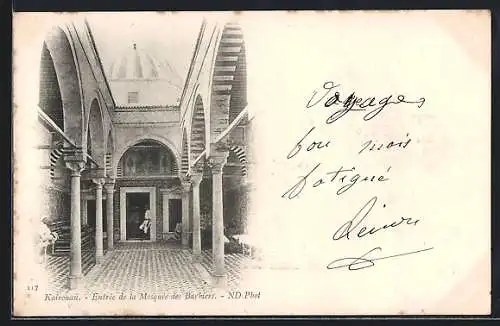 Voyage
bon mais
fatigué
117
Kairouan. - Entrée de la Mosquée des Barbiers. - ND Phot